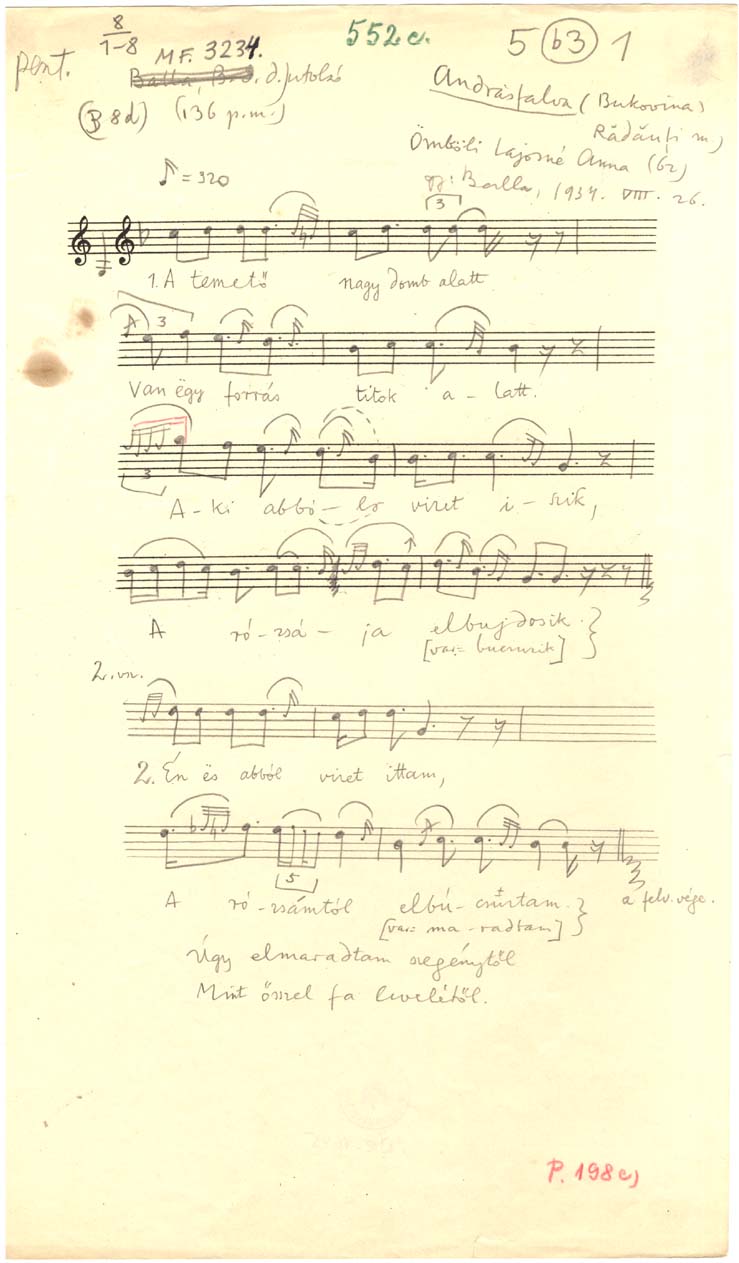 8
1-8
552c.
5 (b3) 1
pent.
MF. 3234.
Balla, d. utolsó
(B 8d) (136 p.m.)
Andrásfalva (Bukovina)
Rădăuţi m)
Ömböli Lajosné Anna (62)
gy: Balla, 1934. VIII. 26.
♪ = 320
3
1. A temető nagy domb alatt
3
Van ëgy forrás titok a-latt.
3
A-ki abbó-lo vizet i-szik,
A ró-zsá-ja elbujdosik.}
[var= bucsuzik]
2. vsz.
2. Én ës abból vizet ittam,
5
A ró-zsámtól elbú-csúztam.} a felv. vége.
[var= ma-radtam]
Úgy elmaradtam szegénytől
Mint ősszel fa levelétől.
P. 198c)